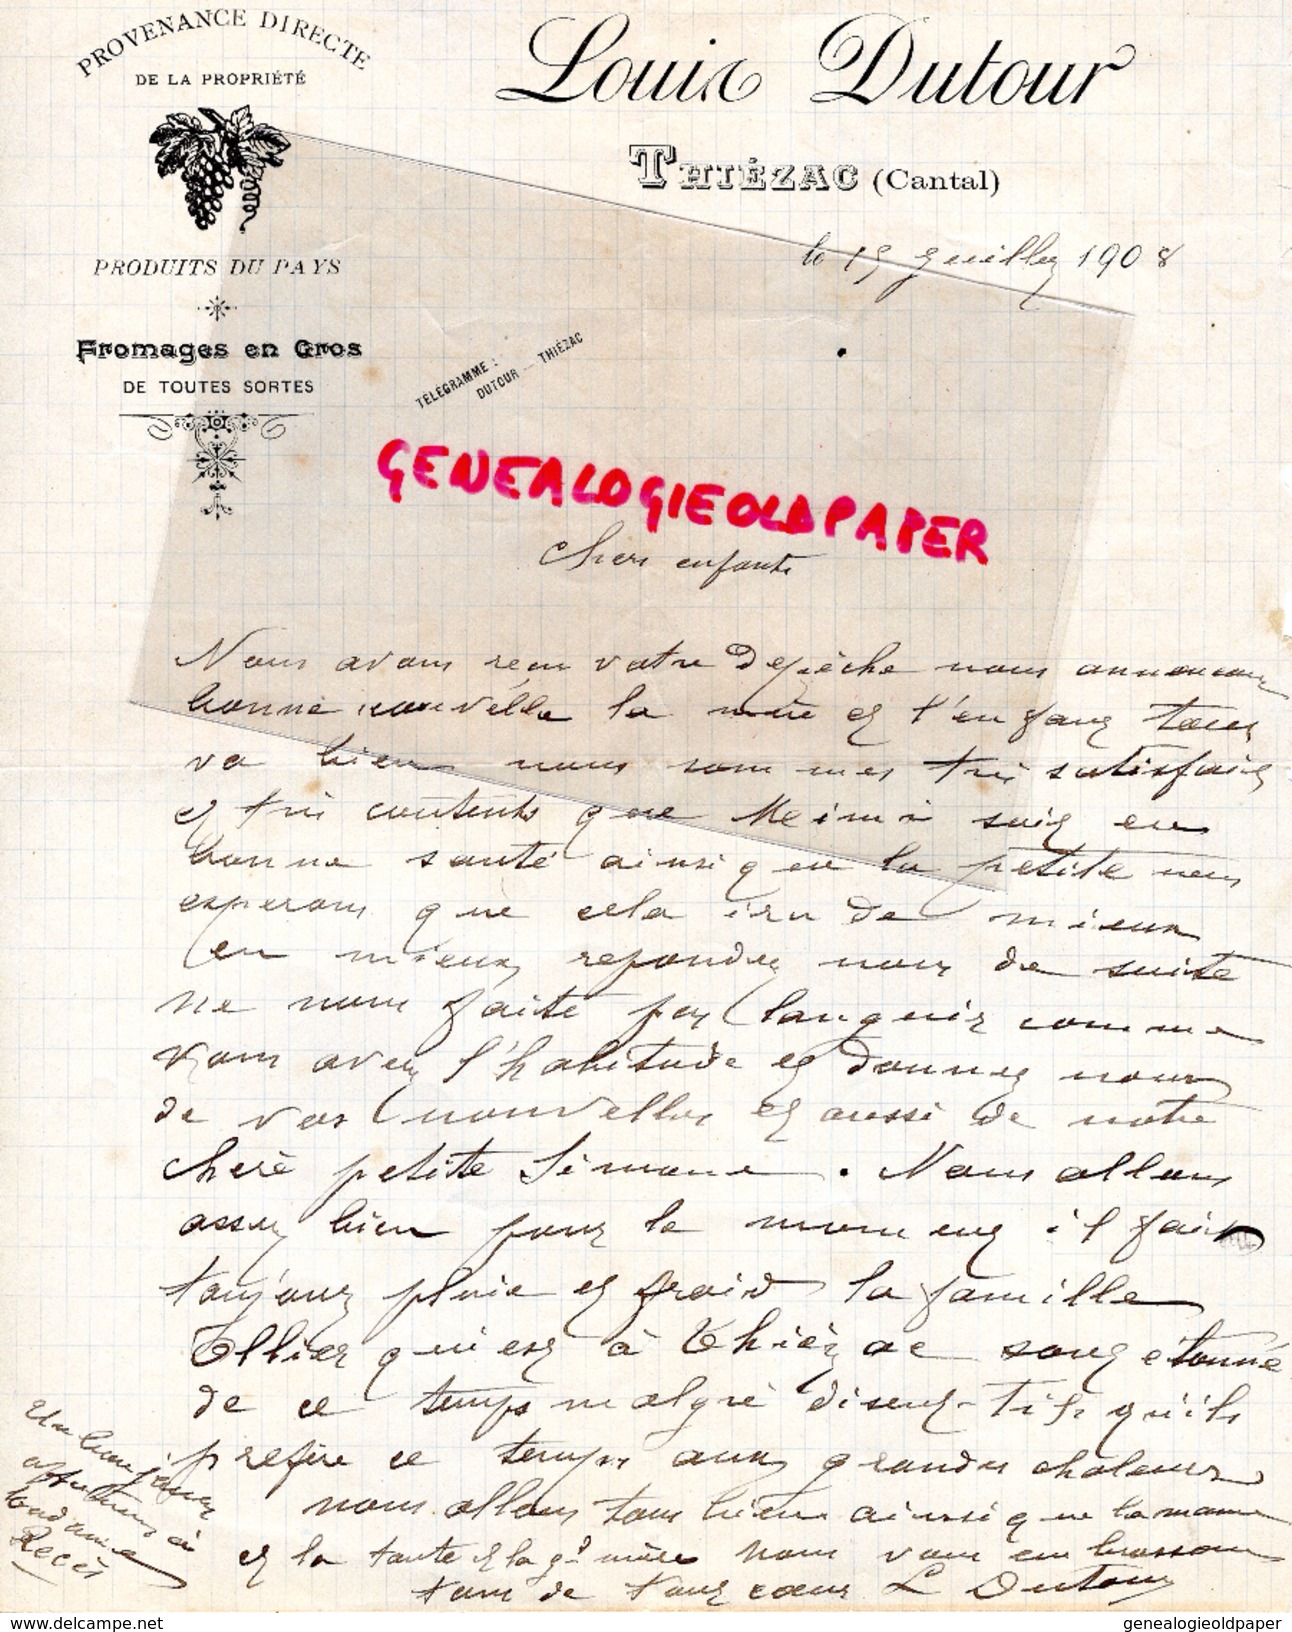 PROVENANCE DIRECTE
DE LA PROPRIÉTÉ
PRODUITS DU PAYS
Fromages en Gros
DE TOUTES SORTES
Louis Dutour
THIÉZAC (Cantal)
le 15 Juillez 1908
TÉLÉGRAMME :
DUTOUR — THIÉZAC
GENEALOGIEOLDPAPER
Chers enfants
Nous avons reçu votre Depèche nous annoncans
bonne nouvelle la mère et l'enfant tous
va bien nous sommes très satisfait
et très contents que Mimi soit en
bonne santé ainsi que la petite nous
esperons que cela ira de mieux
en mieux repondez nous de suite
ne nous faite pas languir comme
vous avez l'habitude et donnez nous
de vos nouvelles et aussi de notre
cherè petite Simone . Nous allons
assez bien pour le moment il fait
toujours pluie et froid la famille
Ollier qui est à Thièzac sont étonné
de ce temps malgrè disent-Tils qu'ils
prefère ce temps aux grandes chaleurs
nous allons tous bien ainsi que la maman
et la tante et la gd mère nous vous embrassons
tous de tout cœur L Dutour
Une bonne
à
Recès
genealogieoldpaper